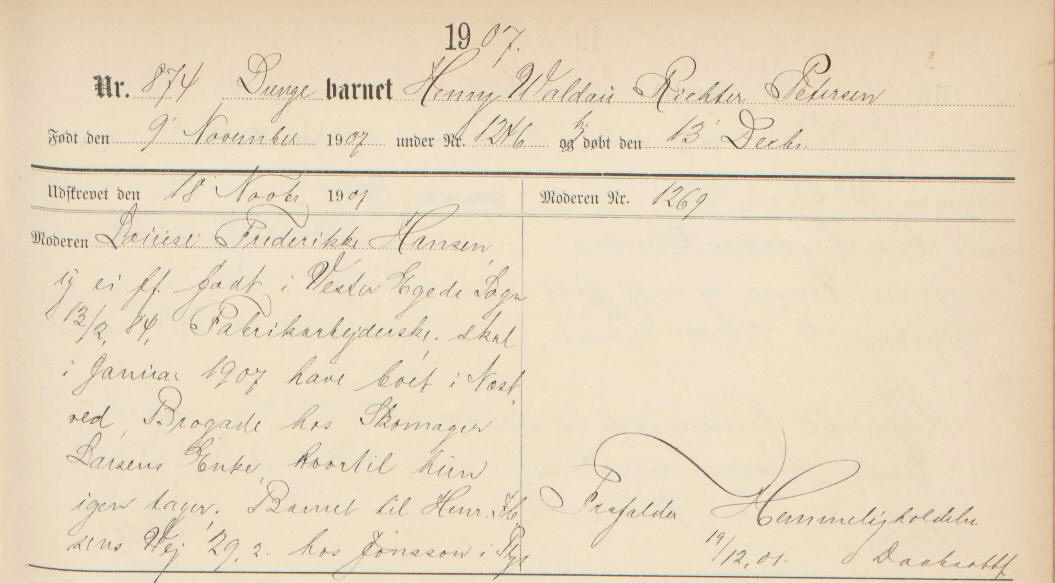 1907.
Nr. 874 Drenge barnet Henry Waldau Richter Petersen
Født den 9' November 1907 under Nr. 1246 og døbt den 13' Decbr.
Udskrevet den 18 Novbr. 1907 Moderen Nr. 1269
Moderen Louise Frederikke Hansen,
ig ei ff. født i Vester Egede Sogn
13/2. 84, Fabrikarbejderske. skal
i Januar 1907 have boet i Næst
ved, Brogade hos Skomager
Larsens Enke, hvortil hun
igen tager. Barnet til Henr.
sens Vej 29. 2. hos Jønsson i
Frafalder Hemmeligholdelse
19/12. 07.